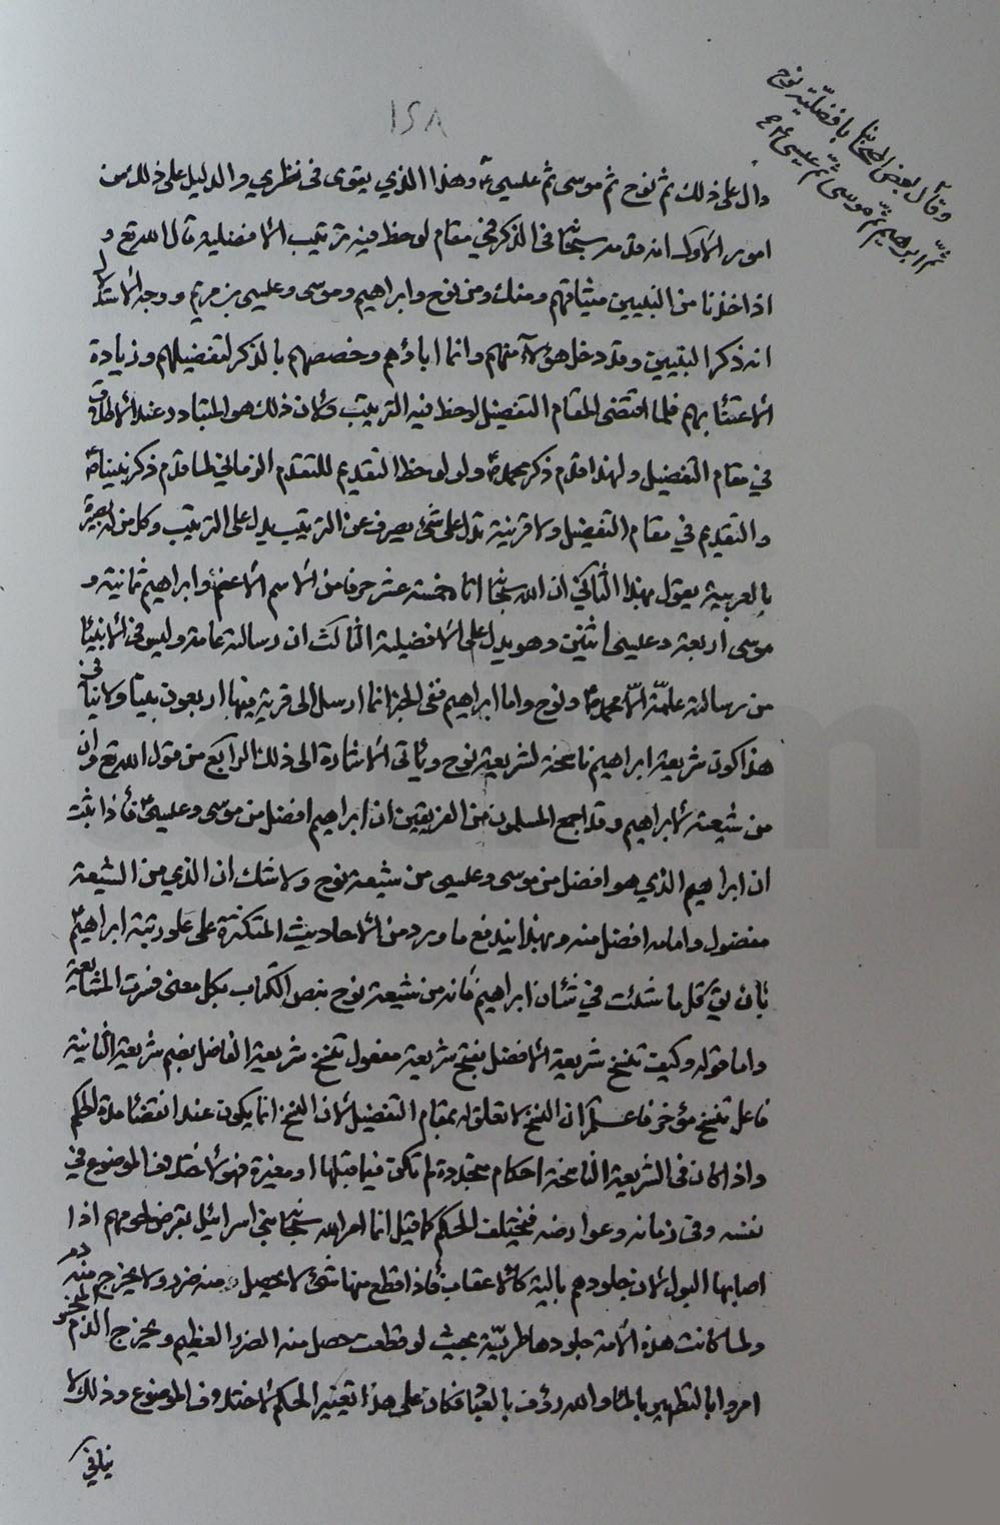 ١٢٨
وقال بعض اصحابنا بافضلية نوح
ثم ابراهيم ثم موسى ثم عيسى ع
دال على ذلك ثم نوح ثم موسى ثم عليسى ع وهذا الذي يقوى فى نظري والدليل على ذلك من
امور الاول انه قد مدر سبحانه فى الذكر في مقام لوحظ فيه ترتيب الافضليه قال الله تع و
اذ اخذنا من النبيين ميثاقهم ومنك ومن نوح وابراهيم وموسى وعيسى بن مريم ووجه الاستدلال
انه ذكر النبيين وقد دخل هؤلاء منهم وانما اباؤهم وخصصهم بالذكر لتفضيلهم وزيادة
الاعتناء بهم فلما اقتضى المقام التفضيل لوحظ فيه الترتيب ولان ذلك هو المتبادر عند الاطلاق
في مقام التفضيل ولهذا قدم ذكر محمد ص ولو لوحظ التقديم للتقدم الزماني لما قدم ذكر نبينا ص
والتقديم في مقام التفضيل ولا قرينة تدل على شئ يصرف عن الترتيب يدل على الترتيب وكل من له بصيرة
بالعربية يقول بهذا الثاني ان الله سبحانه اتاه خمسة عشر حرفا من الاسم الاعظم وابراهيم ثمانية و
موسى اربعة وعليسى اثنين وهو يدل على الافضلية الثالث ان رسالته عامة وليس فى الانبياء
من رسالته عامّة الّا محمد ص ونوح واما ابراهيم ففى الخبر انما ارسل الى قرية فيها اربعون بيتا ولا ينافى
هذا كون شريعة ابراهيم ناسخة لشريعة نوح وياتى الاشارة الى ذلك الرابع من قول الله تع وان
من شيعته لابراهيم وقد اجمع المسلمون من الفريقين ان ابراهيم افضل من موسى وعليسى ع فاذا ثبت
ان ابراهيم الذي هو افضل من موسى وعليسى من شيعة نوح ولا شك ان الذي من الشيعة
مفضول وامامه افضل منه وبهذا يندفع ما ورد من الاحاديث المتكثرة على علو رتبة ابراهيم ع
بان يق كل ما شئت في شان ابراهيم فانه من شيعة نوح بنص الكتاب بكل معنى فسرت المشايعة
واما قوله وكيف تنسخ شريعة الافضل بفتح شريعة مفعول تنسخ شريعة الفاضل بضم شريعة الثانية
فاعل تنسخ مؤخر فاعلم ان النسخ لا تعلق له بمقام التفضيل لان النسخ انما يكون عند انقضاء مدة الحكم
واذا كان فى الشريعة الناسخة احكام متجددة لم تكن فيما قبلها او مغيرة فهو لاختلاف الموضوع في
نفسه وفى زمانه وعوارضه فيختلف الحكم كما قيل انما امر الله سبحانه بني اسرائيل بقرض لحومهم اذا
اصابها البول لان جلودهم يالية كالاعقاب فاذا قطع منها شئ لا يحصل منه ضرر ولا يخرج منه دم
ولما كانت هذه الامة جلودها طريّة بحيث لو قطعت حصل منه الضرر العظيم ويخرج الدم
امروا بالتطهير بالماء والله رؤف بالعباد فكان على هذا تغيير الحكم لاختلاف الموضوع وذلك لا
ينافي